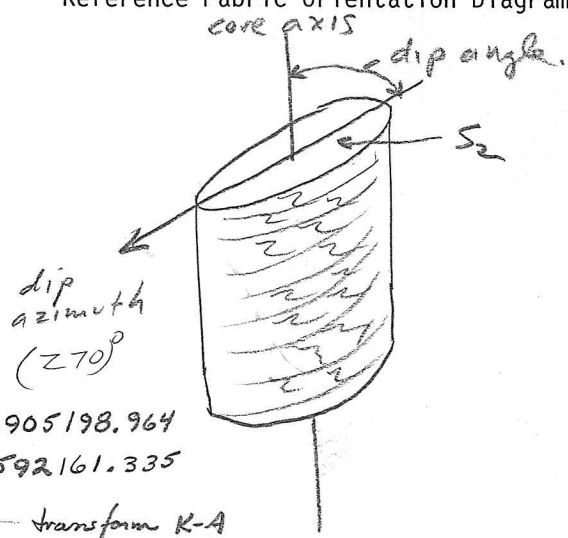 Reference Fabric Orientation Diagram
core axis
dip angle.
S2
dip
azimuth
(270)°
905198.964
592161.335
transform K-A